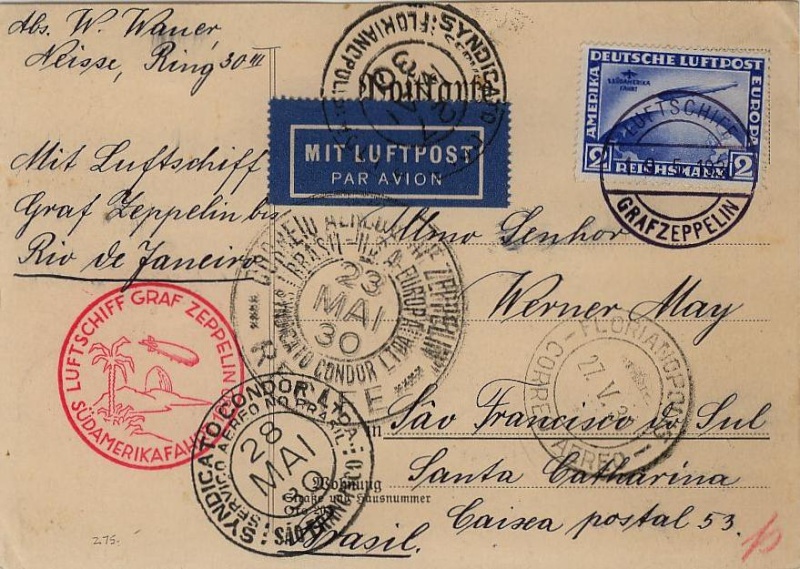 Abs. W. Wauer,
Neisse, Ring 30 III
Postkarte
MIT LUFTPOST
PAR AVION
DEUTSCHE LUFTPOST
AMERIKA
EUROPA
SÜDAMERIKA
FAHRT
2 REICHSMARK 2
LUFTSCHIFF
GRAFZEPPELIN
SYNDICATO
FLORIANOPOLIS
Mit Luftschiff
Graf Zeppelin bis
Rio de Janeiro
CORREIO AEREO
ZEPPELIN
BRASIL
EUROPA
SYNDICATO CONDOR LTDA
23
MAI
30
RECIFE
Illmo Senhor
Werner May
LUFTSCHIFF GRAF ZEPPELIN
SÜDAMERIKAFAHRT
FLORIANOPOLIS
27. V.
CORREIO AEREO
in São Francisco do Sul
SYNDICATO CONDOR LTDA.
SERVIÇO AEREO NO BRASIL
28
MAI
30
SÃO FRANCISCO
Santa Catharina
Wohnung
Straße und Hausnummer
Caixa postal 53.
Brasil.
275.